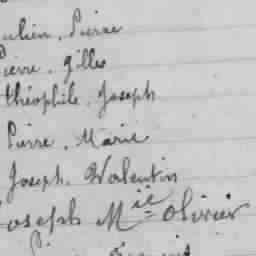 ulien, Pierre
Pierre, Gilles
théophile, Joseph
Pierre, Marie
Joseph, Valentin
oseph Mie olivier